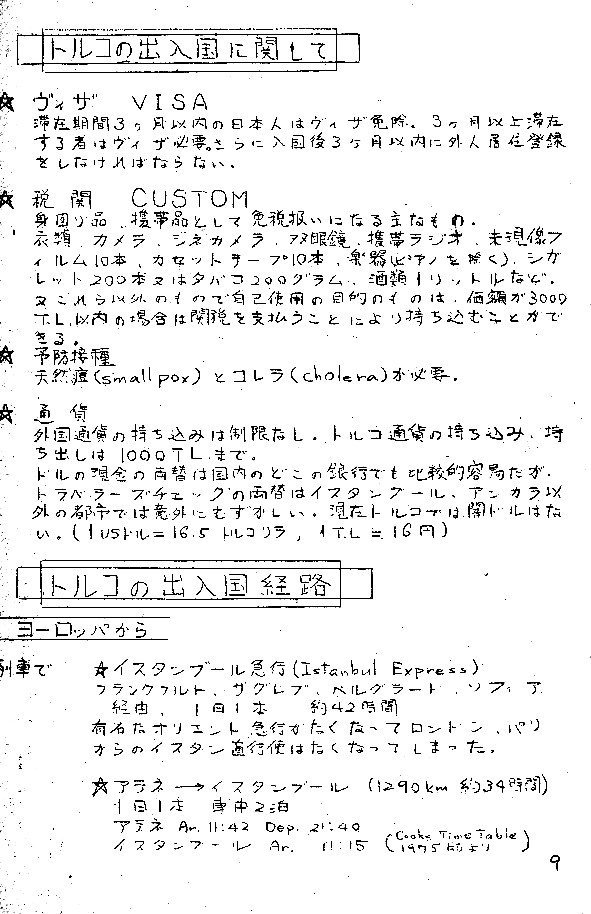 トルコの出入国に関して
☆ ヴィザ VISA
滞在期間3ヶ月以内の日本人はヴィザ免除。3ヶ月以上滞在
する者はヴィザ必要。さらに入国後3ヶ月以内に外人居住登録
をしなければならない。
☆ 税関 CUSTOM
身回り品、携帯品として免税扱いになる主なもの。
衣類、カメラ、シネカメラ、双眼鏡、携帯ラジオ、未現像フ
ィルム10本、カセットテープ10本、楽器(ピアノを除く)、シガ
レット200本又はタバコ200グラム、酒類1リットルなど。
又これら以外のもので自己使用の目的のものは、価額が3000
T.L.以内の場合は関税を支払うことにより持ち込むことがで
きる。
☆ 予防接種
天然痘(small pox)とコレラ(cholera)が必要。
☆ 通貨
外国通貨の持ち込みは制限なし。トルコ通貨の持ち込み、持
ち出しは1000T.L.まで。
ドルの現金の両替は国内のどこの銀行でも比較的容易だが、
トラベラーズチェックの両替はイスタンブール、アンカラ以
外の都市では意外にむずかしい。現在トルコでは闇ドルはな
い。(1USドル=16.5トルコリラ, 1T.L.=16円)
トルコの出入国経路
ヨーロッパから
列車で ☆イスタンブール急行(Istanbul Express)
フランクフルト、ザグレブ、ベルグラード、ソフィア
経由、1日1本 約42時間
有名なオリエント急行がなくなってロンドン、パリ
からのイスタン直行便はなくなってしまった。
☆アテネ→イスタンブール (1290km 約34時間)
1日1本 車中2泊
アテネ Ar. 11:42 Dep. 21:40
イスタンブール Ar. 11:15 (Cooks Time Table
1975 より)
9